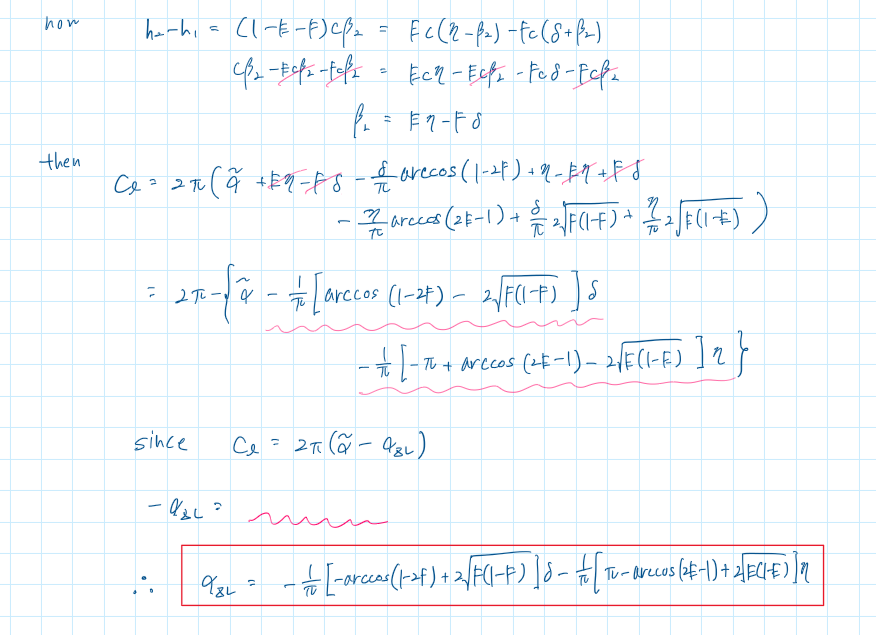 now h₂-h₁ = (1-E-F)cβ₂ = Ec(η-β₂) - Fc(δ+β₂)
cβ₂ - Ecβ₂ - Fcβ₂ = Ecη - Ecβ₂ - Fcδ - Fcβ₂
β₂ = Eη - Fδ
then
Cℓ = 2π(α̃ + Eη - Fδ - δ/π arccos(1-2F) + η - Eη + Fδ
- η/π arccos(2E-1) + δ/π 2√F(1-F) + η/π 2√E(1-E) )
= 2π-{ α̃ - 1/π [arccos (1-2F) - 2√F(1-F) ] δ
- 1/π [-π + arccos (2E-1) - 2√E(1-E) ] η }
since Cℓ = 2π(α̃ - α_ZL)
- α_ZL =
∴ α_ZL = - 1/π [-arccos(1-2F) + 2√F(1-F) ] δ - 1/π [ π - arccos(2E-1) + 2√E(1-E) ] η